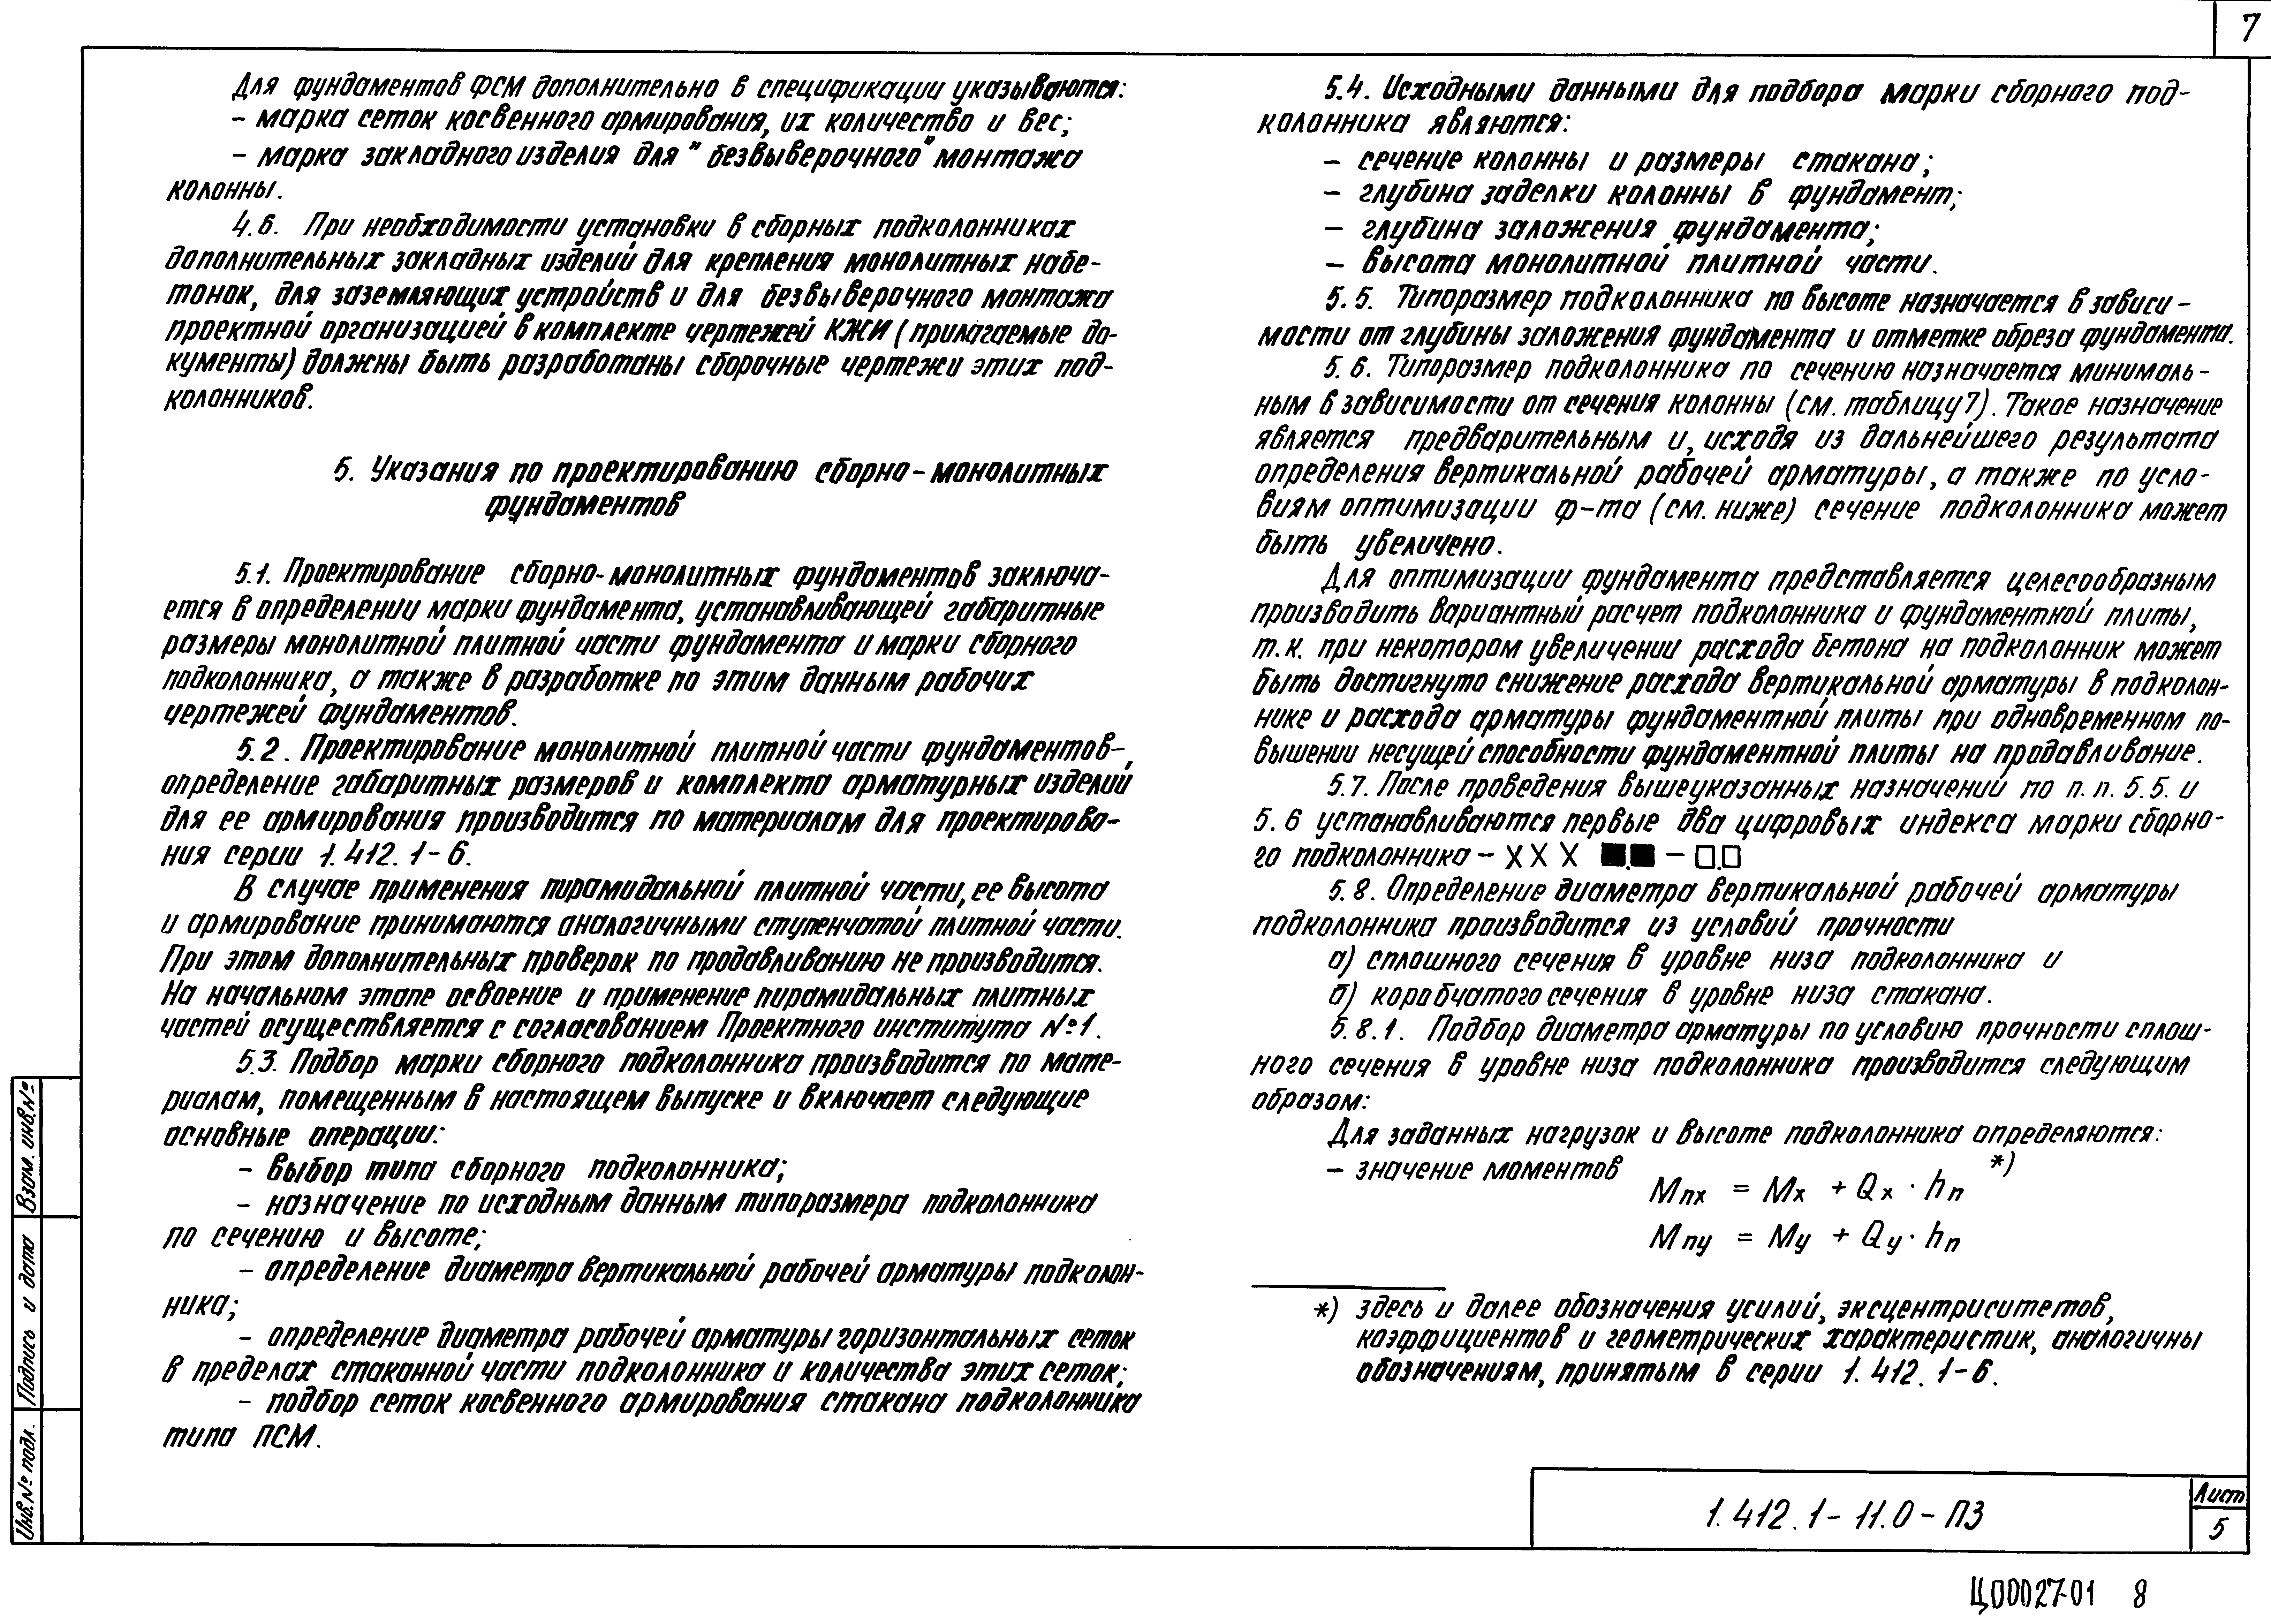 7
Для фундаментов ФСМ дополнительно в спецификации указываются:
- марка сеток косвенного армирования, их количество и вес;
- марка закладного изделия для "безвыверочного" монтажа
колонны.
4.6. При необходимости установки в сборных подколонниках
дополнительных закладных изделий для крепления монолитных набе-
тонок, для заземляющих устройств и для безвыверочного монтажа
проектной организацией в комплекте чертежей КЖИ (прилагаемые до-
кументы) должны быть разработаны сборочные чертежи этих под-
колонников.
5. Указания по проектированию сборно-монолитных
фундаментов
5.1. Проектирование сборно-монолитных фундаментов заключа-
ется в определении марки фундамента, устанавливающей габаритные
размеры монолитной плитной части фундамента и марки сборного
подколонника, а также в разработке по этим данным рабочих
чертежей фундаментов.
5.2. Проектирование монолитной плитной части фундаментов-,
определение габаритных размеров и комплекта арматурных изделий
для ее армирования производится по материалам для проектирова-
ния серии 1.412.1-6.
В случае применения пирамидальной плитной части, ее высота
и армирование принимаются аналогичными ступенчатой плитной части.
При этом дополнительных проверок по продавливанию не производится.
На начальном этапе освоение и применение пирамидальных плитных
частей осуществляется с согласованием Проектного института №1.
5.3. Подбор марки сборного подколонника производится по мате-
риалам, помещенным в настоящем выпуске и включает следующие
основные операции:
- выбор типа сборного подколонника;
- назначение по исходным данным типоразмера подколонника
по сечению и высоте;
- определение диаметра вертикальной рабочей арматуры подколон-
ника;
- определение диаметра рабочей арматуры горизонтальных сеток
в пределах стаканной части подколонника и количества этих сеток;
- подбор сеток косвенного армирования стакана подколонника
типа ПСМ.
5.4. Исходными данными для подбора марки сборного под-
колонника являются:
- сечение колонны и размеры стакана;
- глубина заделки колонны в фундамент;
- глубина заложения фундамента;
- высота монолитной плитной части.
5.5. Типоразмер подколонника по высоте назначается в зависи-
мости от глубины заложения фундамента и отметке обреза фундамента.
5.6. Типоразмер подколонника по сечению назначается минималь-
ным в зависимости от сечения колонны (см. таблицу 7). Такое назначение
является предварительным и, исходя из дальнейшего результата
определения вертикальной рабочей арматуры, а также по усло-
виям оптимизации ф-та (см. ниже) сечение подколонника может
быть увеличено.
Для оптимизации фундамента представляется целесообразным
производить вариантный расчет подколонника и фундаментной плиты,
т.к. при некотором увеличении расхода бетона на подколонник может
быть достигнуто снижение расхода вертикальной арматуры в подколон-
нике и расхода арматуры фундаментной плиты при одновременном по-
вышении несущей способности фундаментной плиты на продавливание.
5.7. После проведения вышеуказанных назначений по п.п. 5.5. и
5.6 устанавливаются первые два цифровых индекса марки сборно-
го подколонника - ХХХ ■.■ - □.□
5.8. Определение диаметра вертикальной рабочей арматуры
подколонника производится из условий прочности
а) сплошного сечения в уровне низа подколонника и
б) коробчатого сечения в уровне низа стакана.
5.8.1. Подбор диаметра арматуры по условию прочности сплош-
ного сечения в уровне низа подколонника производится следующим
образом:
Для заданных нагрузок и высоте подколонника определяются:
- значение моментов Mпх = Mх + Qх · hп *)
Mпу = Mу + Qу · hп
*) здесь и далее обозначения усилий, эксцентриситетов,
коэффициентов и геометрических характеристик, аналогичны
обозначениям, принятым в серии 1.412.1-6.
Взам. инв. №
Подпись и дата
Инв. № подл.
1.412.1-11.0-ПЗ
Лист
5
Ц00027-01 8